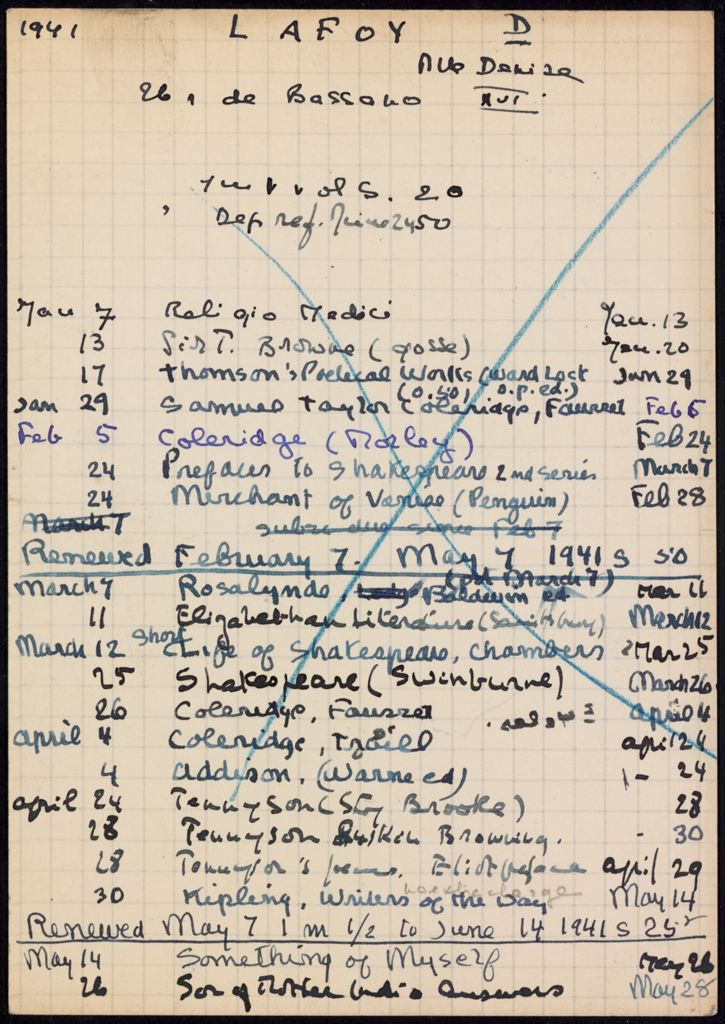 1941 LAFOY D
Mlle Denise
26 r de Bassano XVI
1 m 1 vol S. 20
Dep ref. June 24 50
Jan 7 Religio Medici Jan. 13
13 Sir T. Browne (Gosse) Jan. 20
17 Thomson's Poetical Works (Ward Lock Jan 29
(0.40, o.p. ed.)
Jan 29 Samuel Taylor Coleridge, Fausset Feb 5
Feb 5 Coleridge (Morley) Feb 24
24 Prefaces to Shakespeare 2nd series March 7
24 Merchant of Venise (Penguin) Feb 28
March 7 subsc due since Feb 7
Renewed February 7. May 7 1941 S 50
(pd March 7)
March 7 Rosalynde, Baldwin ed Mar 11
11 Elizabethan Literature (Saintsbury) March 12
March 12 Short Life of Shakespeare, Chambers Mar 25
25 Shakespeare (Swinburne) March 26
26 Coleridge, Fausset april 4
april 4 Coleridge, Traill april 24
4 addison, (Warne ed) 24
april 24 Tennyson (Stop Brooke) 28
28 Tennyson Ruskin Browning. - 30
28 Tennyson's poems. Eliot preface april 29
no extra charge
30 Kipling, Writers of the Day May 14
Renewed May 7 1 m 1/2 to June 14 1941 S 25
May 14 Something of Myself May 26
26 Son of Mother India Answers May 28